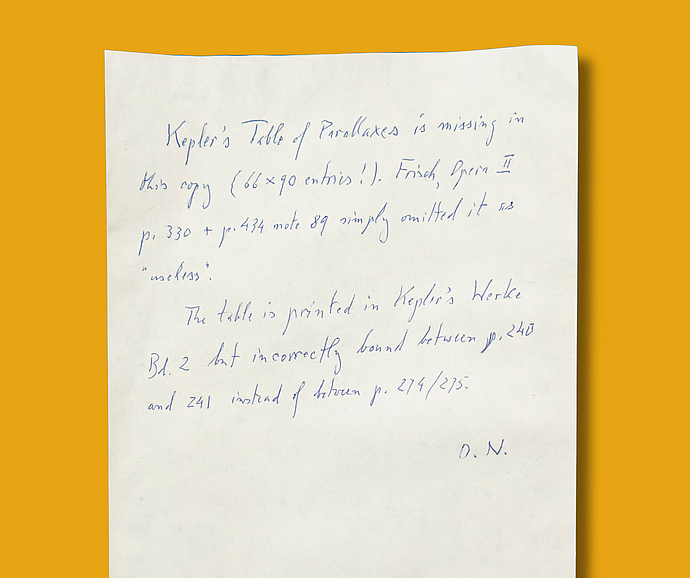 Kepler's Table of Parallaxes is missing in
this copy (66×90 entries!). Frisch, Opera II
p. 330 + p. 434 note 89 simply omitted it as
"useless".
The table is printed in Kepler's Werke
Bd. 2 but incorrectly bound between p. 240
and 241 instead of between p. 274/275.
O. N.